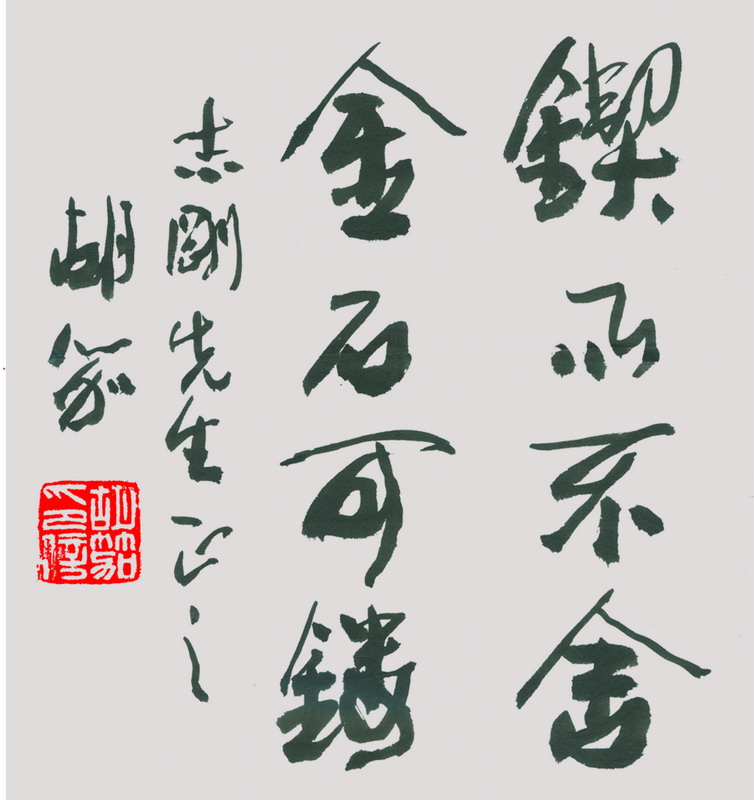 鍥而不舍
金石可鏤
志剛先生正之
胡笳
胡笳
印信